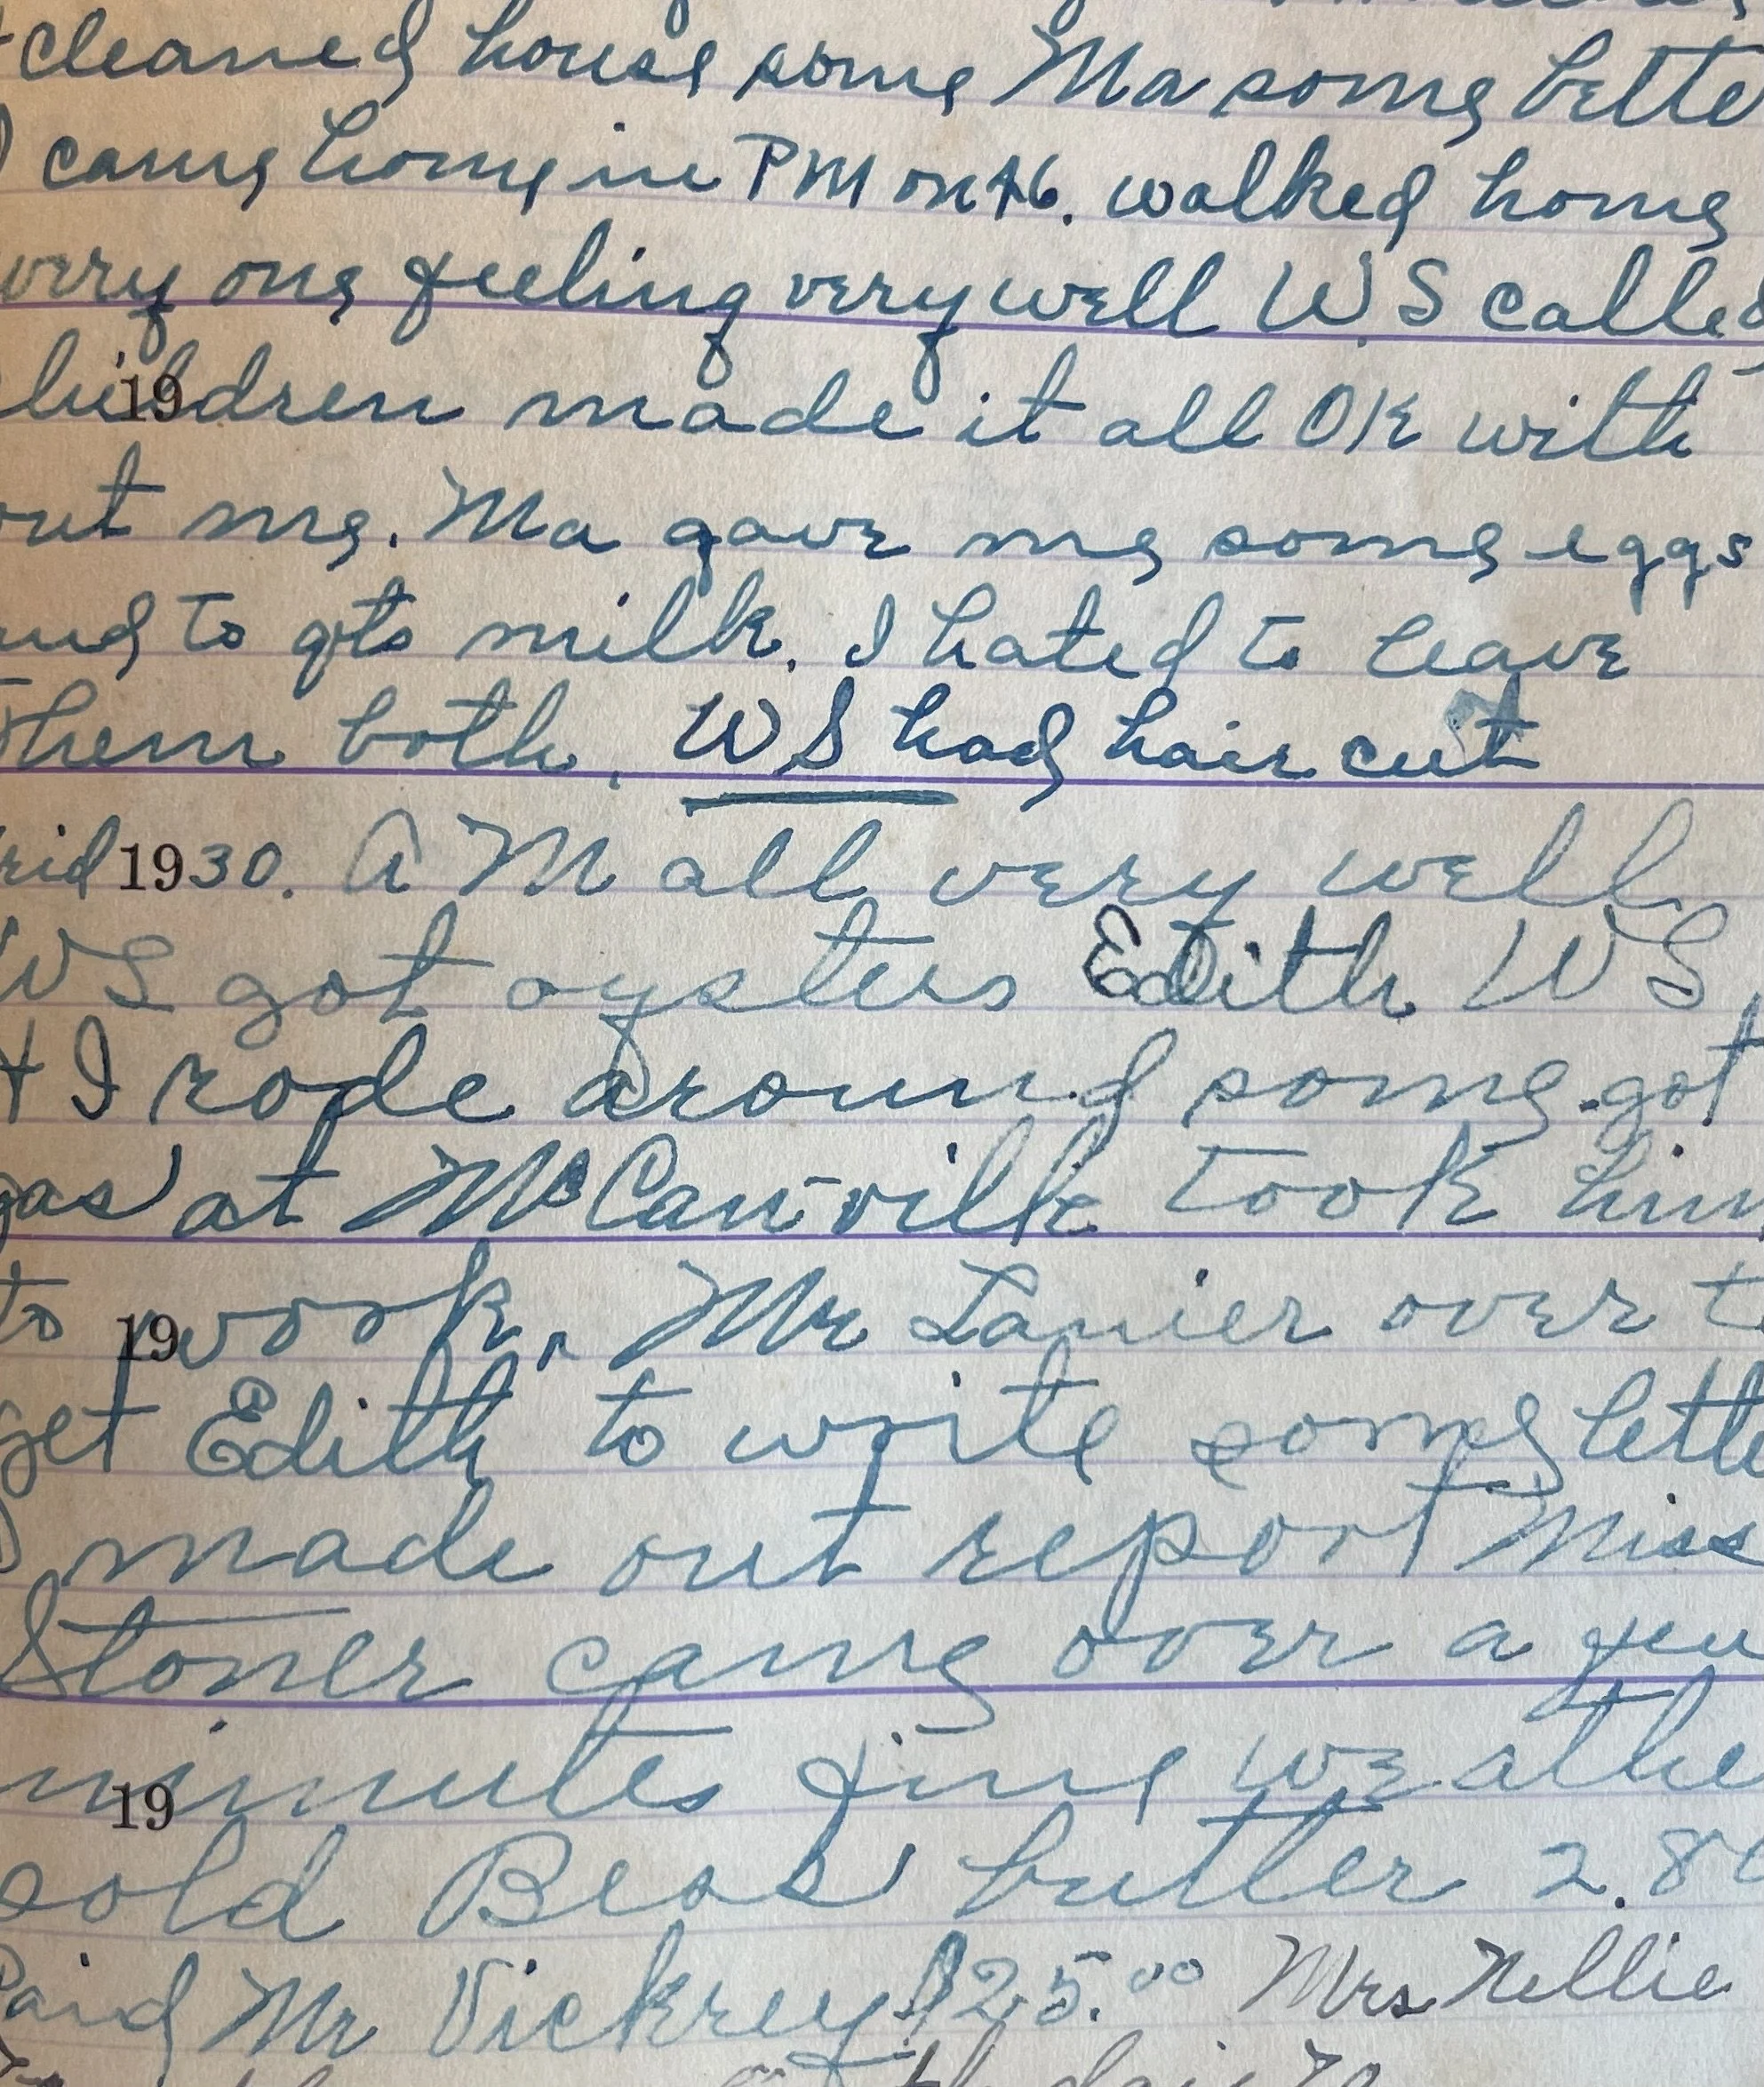 cleaned house some Ma some bette
I came home in PM on #6. walked home
very one feeling very well WS called
children made it all OK with
out me. Ma gave me some eggs
and to qts milk. I hated to leave
them both. WS had hair cut
rid 1930. A M all very well
WS got oysters Edith WS
+ I rode around some got
gas at McCanville took him
to work. Mr Lanier over to
get Edith to write some lette
I made out report Miss
Stoner came over a few
minutes fine weathe
sold Bess butter 2.80
Paid Mr Vickrey $25.00 Mrs Nellie